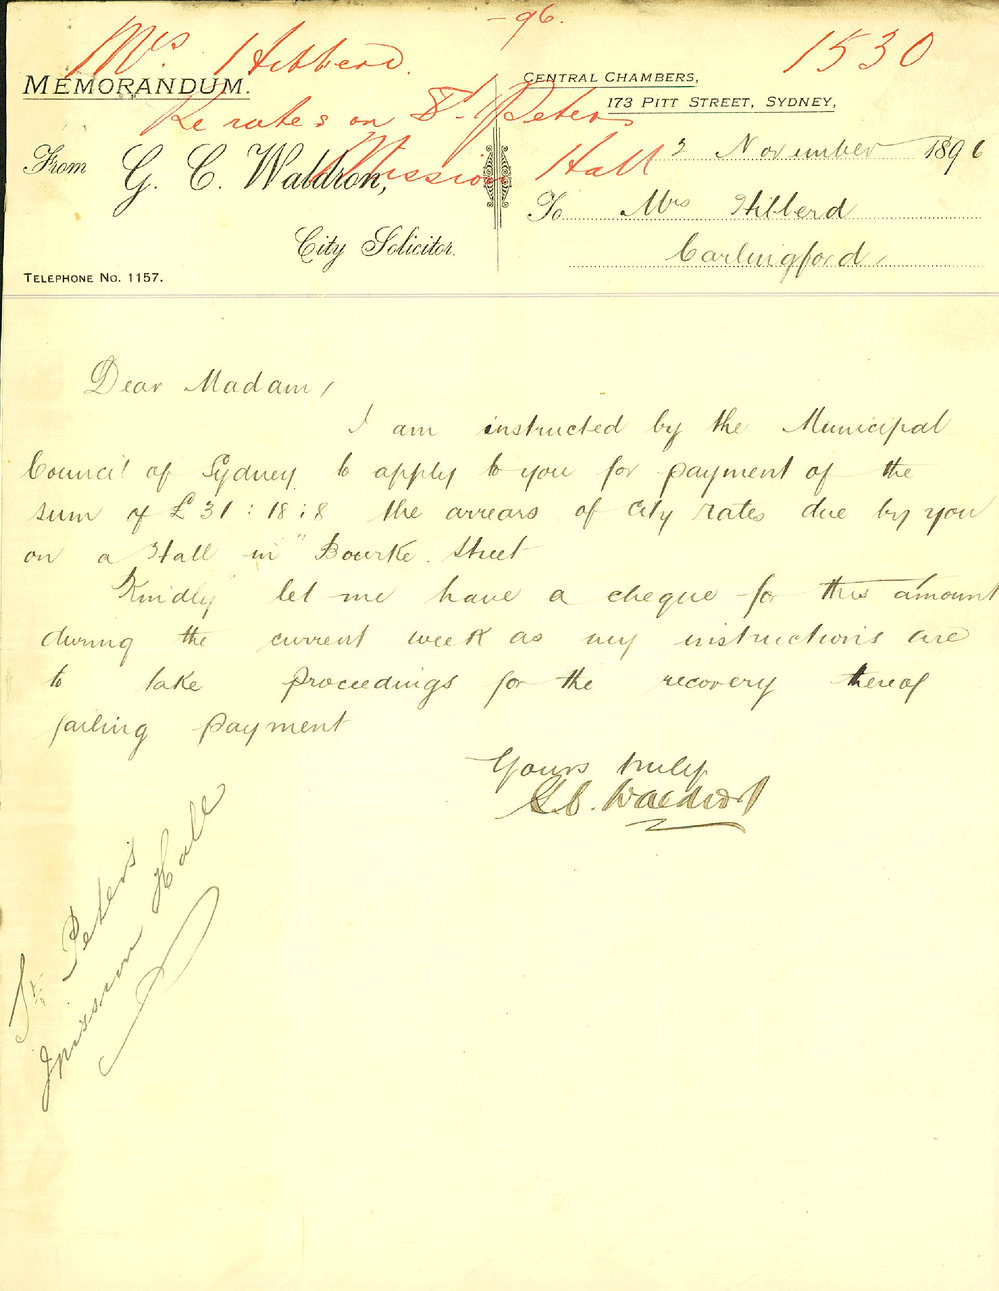 -96.
Mrs. Hibberd. 1530
MEMORANDUM.
CENTRAL CHAMBERS,
173 PITT STREET, SYDNEY,
Re rates on St. Peters
Mission Hall
2 November 1896
From G. C. Waldron,
To Mrs Hibberd
City Solicitor.
Carlingford,
TELEPHONE NO. 1157.
Dear Madam,
I am instructed by the Municipal
Council of Sydney to apply to you for payment of the
sum of £31:18:8 the arrears of city rates due by you
on a Hall in Bourke Street
Kindly let me have a cheque for this amount
during the current week as my instructions are
to take proceedings for the recovery thereof
failing payment
Yours truly
G.C. Waldron
St Peter's
Mission Hall